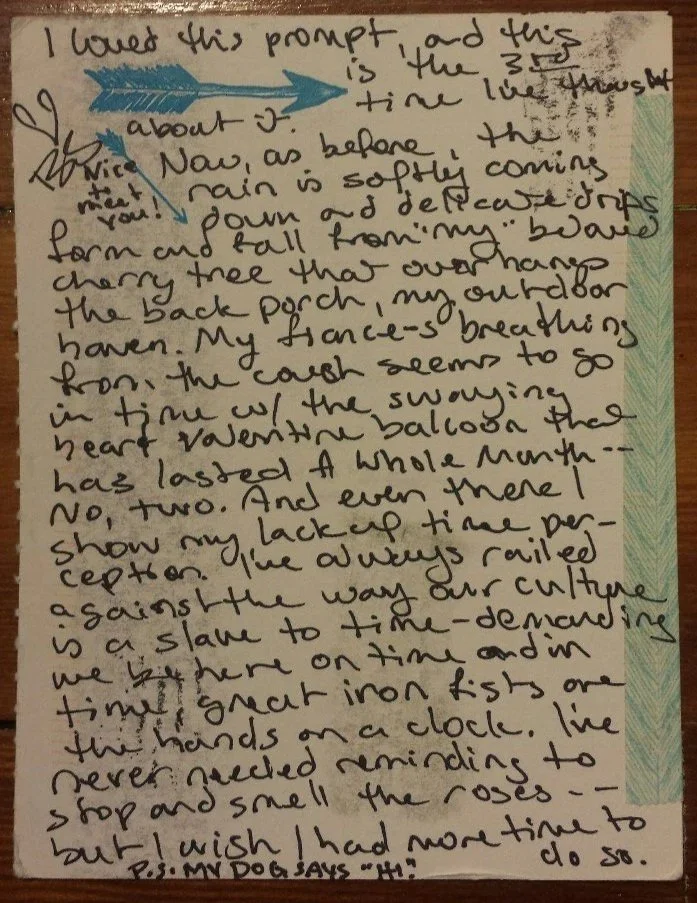 I loved this prompt, and this
is the 3rd
time I've thought
about it.
Nice
to
meet
you!
Now, as before, the
rain is softly coming
down and delicate drips
form and fall from "my" beloved
cherry tree that overhangs
the back porch, my outdoor
haven. My fiance-s breathing
from the couch seems to go
in time w/ the swaying
heart valentine balloon that
has lasted A whole month--
No, two. And even there I
show my lack of time per-
ception. I've always railed
against the way our culture
is a slave to time-demanding
we be here on time and in
time, great iron fists are
the hands on a clock. I've
never needed reminding to
stop and smell the roses --
but I wish I had more time to
do so.
P.S. MY DOG SAYS "HI!"